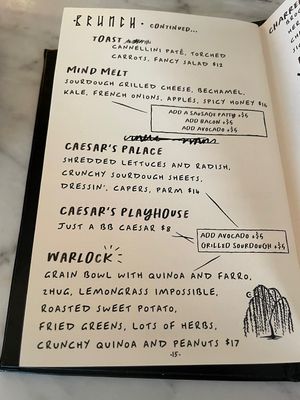 BRUNCH · CONTINUED...
TOAST
CANNELLINI PATÉ, TORCHED
CARROTS, FANCY SALAD $12
MIND MELT
SOURDOUGH GRILLED CHEESE, BECHAMEL,
KALE, FRENCH ONIONS, APPLES, SPICY HONEY $16
ADD A SAUSAGE PATTY +$5
ADD BACON +$5
ADD AVOCADO +$5
CAESAR'S PALACE
SHREDDED LETTUCES AND RADISH,
CRUNCHY SOURDOUGH SHEETS,
DRESSIN', CAPERS, PARM $14
CAESAR'S PLAYHOUSE
JUST A BB CAESAR $8
ADD AVOCADO +$5
GRILLED SOURDOUGH +$5
WARLOCK
GRAIN BOWL WITH QUINOA AND FARRO,
ZHUG, LEMONGRASS IMPOSSIBLE,
ROASTED SWEET POTATO,
FRIED GREENS, LOTS OF HERBS,
CRUNCHY QUINOA AND PEANUTS $17
-15-